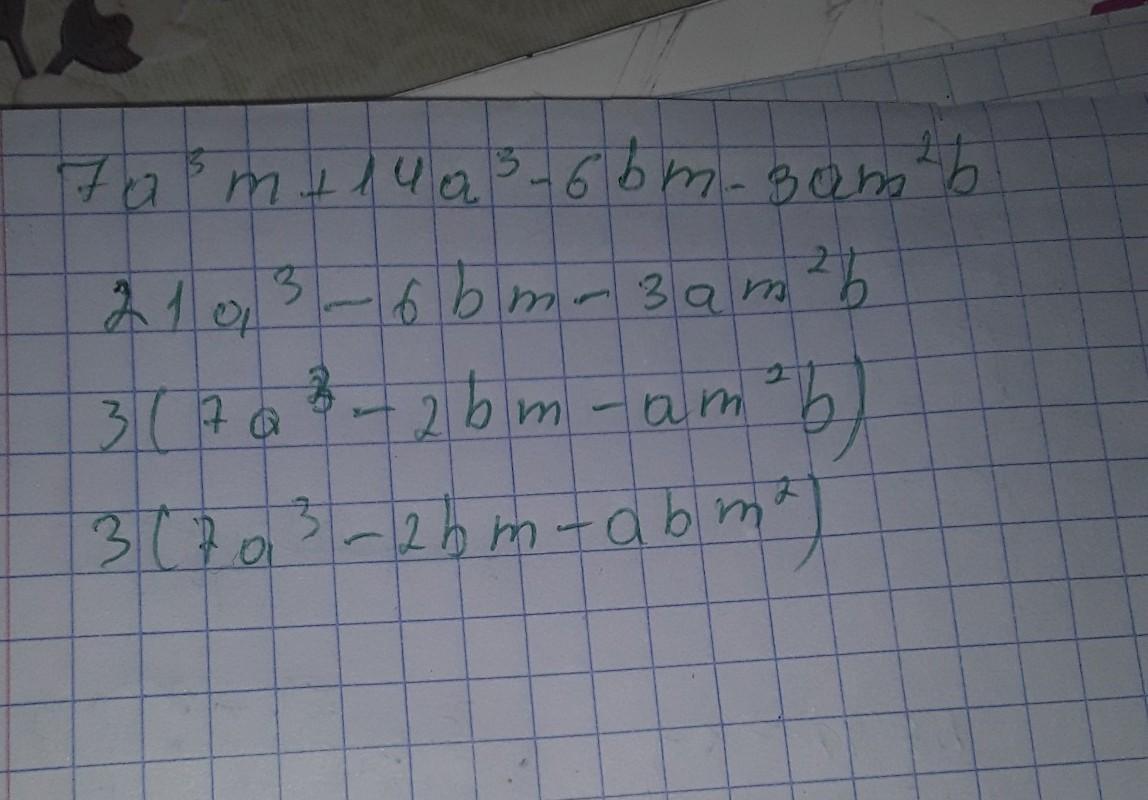 7a³m+14a³-6bm-3am²b
21a³-6bm-3am²b
3(7a³-2bm-am²b)
3(7a³-2bm-abm²)